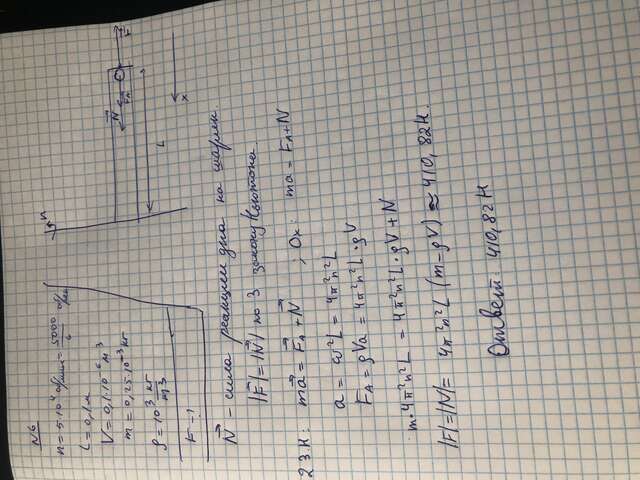 N6
n = 5·10⁴ об/мин = 5000/6 об/с
L = 0,1 м
V = 0,1·10⁻⁶ м³
m = 0,25·10⁻³ кг
ρ = 10³ кг/м³
F - ?
n
L
N
F_A
F
x
N⃗ - сила реакции дна на шарик
|F⃗| = |N⃗| по 3 закону Ньютона
2 З.Н.: ma⃗ = F⃗_A + N⃗ ; Ox: ma = F_A + N
a = ω²L = 4π²n²L
F_A = ρVa = 4π²n²L·ρV
m·4π²n²L = 4π²n²L·ρV + N
|F| = |N| = 4π²n²L (m - ρV) ≈ 410,82 Н.
Ответ: 410,82 Н